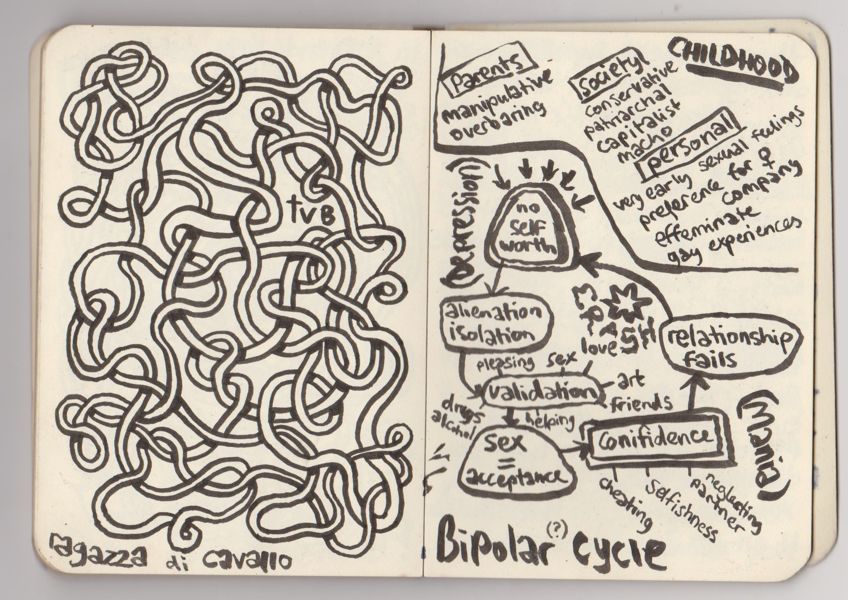 tvB
ragazza di cavallo
CHILDHOOD
Parents
manipulative
overbaring
society
conservative
patriarchal
capitalist
macho
personal
very early sexual feelings
preference for ♀
company
effeminate
gay experiences
(Depression)
no
self
worth
alienation
isolation
pleasing
sex
love
validation
art
friends
drugs
alcohol
helping
sex
=
acceptance
confidence
cheating
selfishness
neglecting
partner
(Mania)
relationship
fails
SMASH
Bipolar (?) cycle